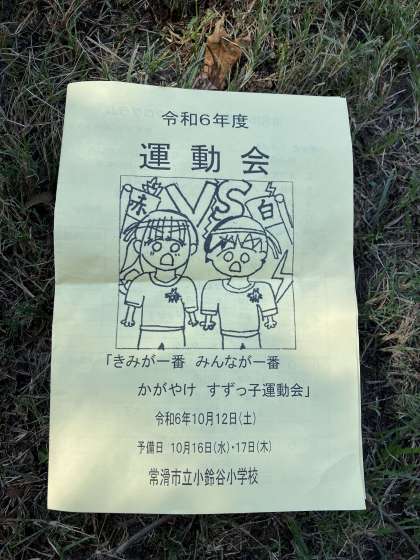 令和6年度
運動会
赤 VS 白
「きみが一番 みんなが一番
かがやけ すずっ子運動会」
令和6年10月12日(土)
予備日 10月16日(水)・17日(木)
常滑市立小鈴谷小学校